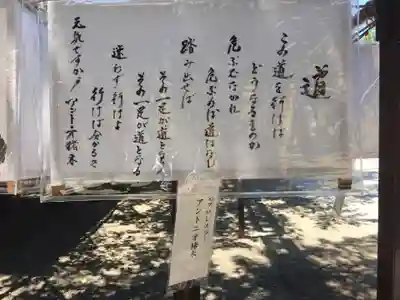 道
この道を行けば
どうなるものか
危ぶむなかれ
危ぶめば道はなし
踏み出せば
その一足が道となり
その一足が道となる
迷わず行けよ
行けば分かるさ
元気ですかー!
アントニオ猪木
アントニオ猪木